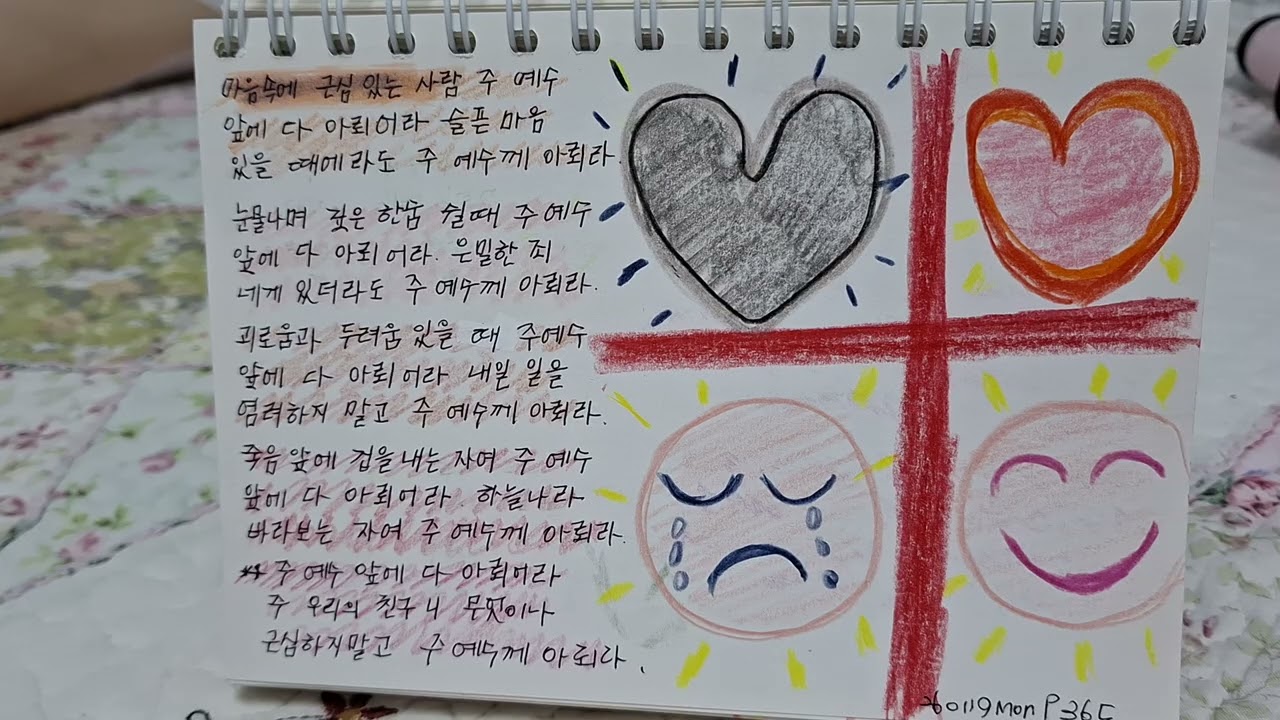 마음속에 근심 있는 사람 주 예수
앞에 다 아뢰어라 슬픈 마음
있을 때에라도 주 예수께 아뢰라.
눈물나며 깊은 한숨 쉴때 주 예수
앞에 다 아뢰어라. 은밀한 죄
네게 있더라도 주 예수께 아뢰라.
괴로움과 두려움 있을 때 주예수
앞에 다 아뢰어라 내일 일을
염려하지 말고 주 예수께 아뢰라.
죽음 앞에 겁을내는 자여 주 예수
앞에 다 아뢰어라. 하늘나라
바라보는 자여 주 예수께 아뢰라.
주 예수 앞에 다 아뢰어라
주 우리의 친구니 무엇이나
근심하지말고 주 예수께 아뢰라.
260119 Mon P 365